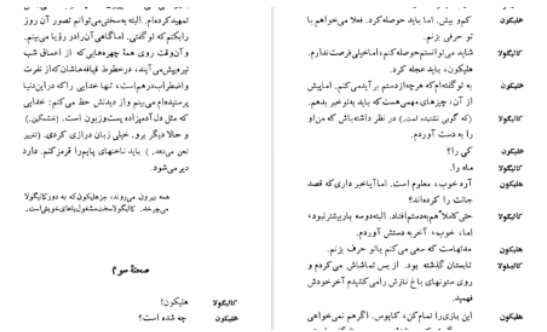 هلیکون کم و بیش. اما باید حوصله کرد. فعلا می‌خواهم با
تو حرفی بزنم.
کالیگولا شاید می‌توانستم حوصله کنم، اما خیلی فرصت ندارم.
هلیکون، باید عجله کرد.
هلیکون به تو گفته‌ام که هرچه از دستم برآید می‌کنم. اما پیش
از آن، چیزهای مهمی هست که باید به تو خبر بدهم.
کالیگولا (که گویی نشنیده است.) در نظر داشته باش که من او
را به دست آوردم.
هلیکون کی را؟
کالیگولا ماه را.
هلیکون آره خوب، معلوم است. اما آیا خبر داری که قصد
جانت را کرده‌اند؟
کالیگولا حتی کاملاً هم به دستم افتاد. البته دو سه بار بیشتر نبود،
اما، خوب، آخر به دستش آوردم.
هلیکون مدتهاست که سعی می‌کنم با تو حرف بزنم.
کالیگولا تابستان گذشته بود. از بس تماشاش می‌کردم و
روی ستونهای باغ نازش را می‌کشیدم آخر خودش
فهمید.
هلیکون این بازی را تمام کن، کایوس. اگر هم نمی‌خواهی
تمهید کرده‌ام. البته به‌سختی می‌توانم تصور آن روز
را بکنم که تو گفتی. اما گاهی آن را در رؤیا می‌بینم.
و آن‌وقت روی همهٔ چهره‌هایی که از اعماق شب
تیره پیش می‌آیند، در خطوط قیافه‌هاشان که از نفرت
و اضطراب درهم است، تنها خدایی را که در این دنیا
پرستیده‌ام می‌بینم و از دیدنش حظ می‌کنم: خدایی
که مثل دل آدمیزاده پست و زبون است. (خشمگین.)
و حالا دیگر برو. خیلی زبان درازی کردی. (تغییر
لحن می‌دهد.) باید ناخنهای پایم را قرمز کنم. دارد
دیر می‌شود.
همه بیرون می‌روند، جز هلیکون که به دور کالیگولا
می‌چرخد. کالیگولا سخت مشغول پاهای خویش است.
صحنهٔ سوم
کالیگولا هلیکون!
هلیکون چه شده است؟